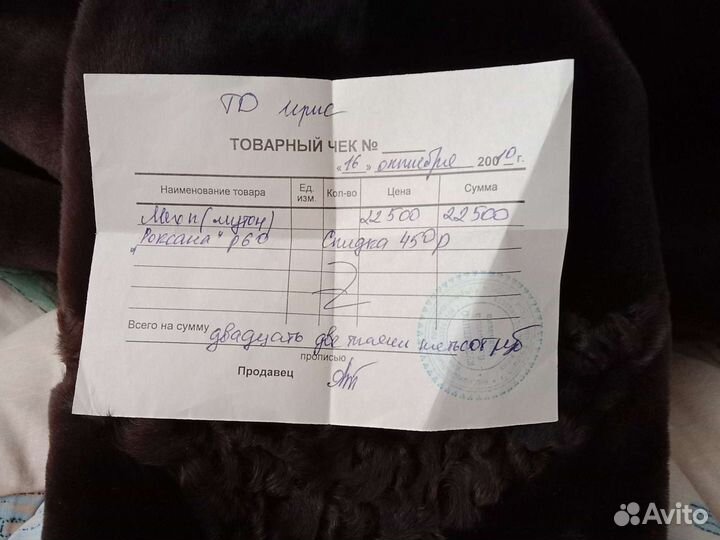 ТД Ирис
ТОВАРНЫЙ ЧЕК №
« 16 » октября 20010 г.
Наименование товара Ед. изм. Кол-во Цена Сумма
Мех п (мутон) 22500 22500
"Роксана" р60 Скидка 450р
Всего на сумму двадцать две тысячи пятьсот руб
прописью
Продавец
Avito